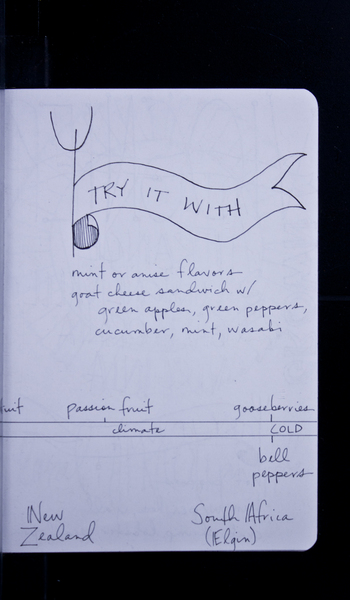 TRY IT WITH
mint or anise flavors
goat cheese sandwich w/
green apples, green peppers,
cucumber, mint, wasabi
passion fruit gooseberries
climate COLD
bell
peppers
New
Zealand
South Africa
(Elgin)